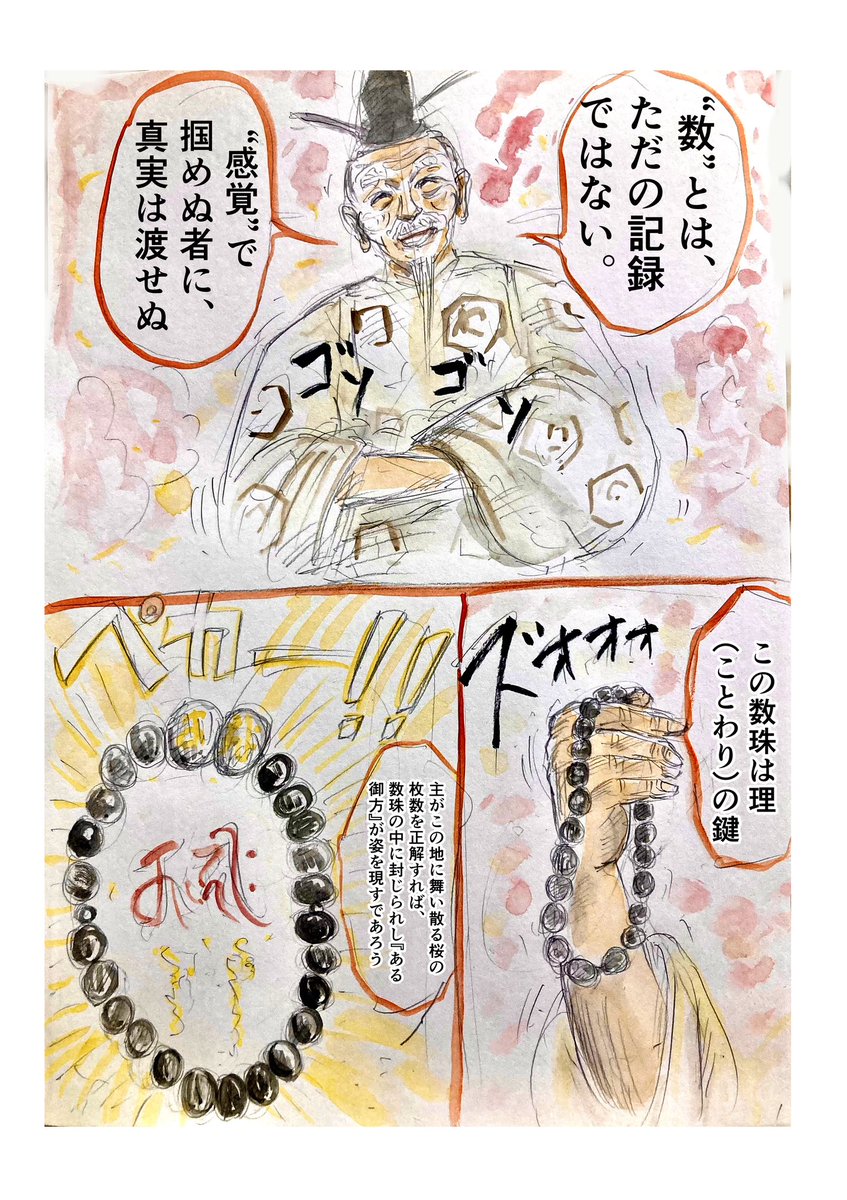 “数”とは、
ただの記録
ではない。
“感覚”で
掴めぬ者に、
真実は渡せぬ
ゴソ
ゴソ
この数珠は理
（ことわり）の鍵
ドオオオ
主がこの地に舞い散る桜の
枚数を正解すれば、
数珠の中に封じられし『ある
御方』が姿を現すであろう
ペカー!!